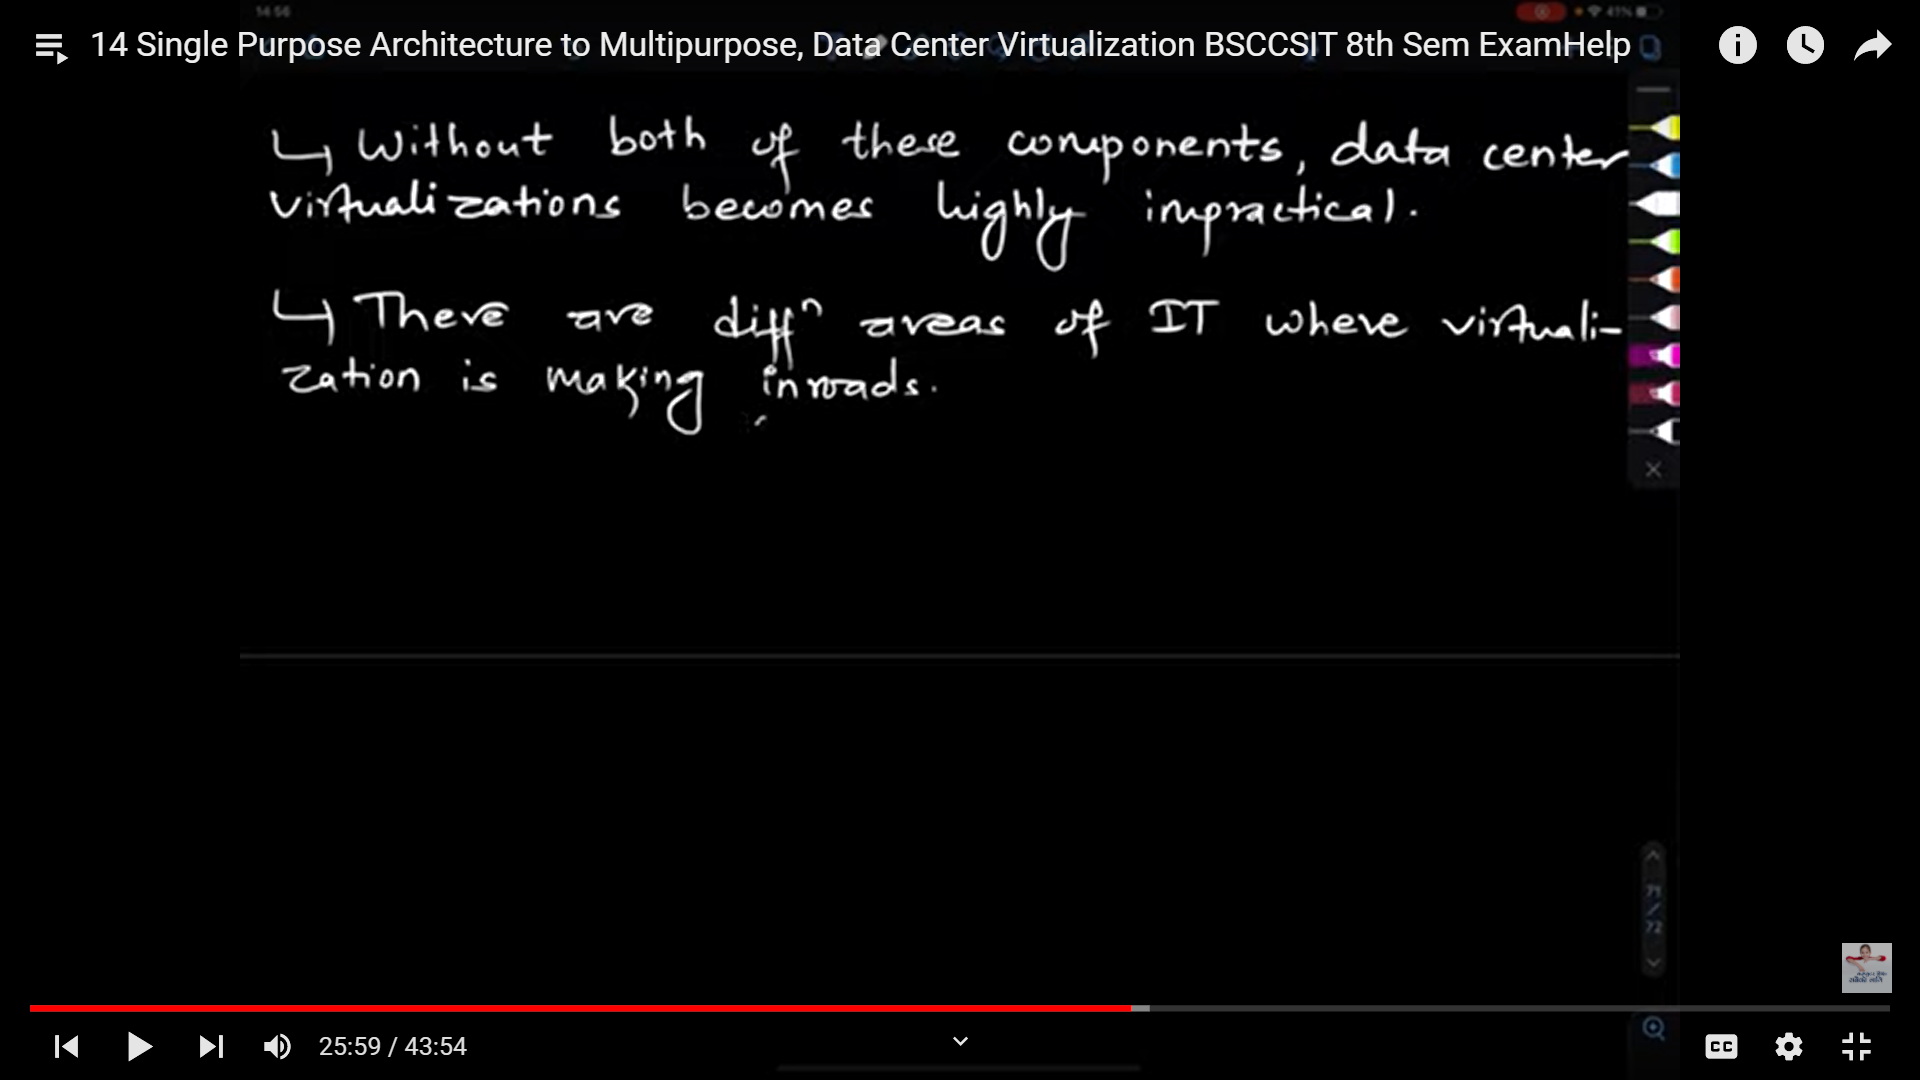 14:56
41%
14 Single Purpose Architecture to Multipurpose, Data Center Virtualization BSCCSIT 8th Sem ExamHelp
↳ Without both of these components, data center
virtualizations becomes highly impractical.
↳ There are diffⁿ areas of IT where virtuali-
zation is making inroads.
71
/
72
25:59 / 43:54
CC